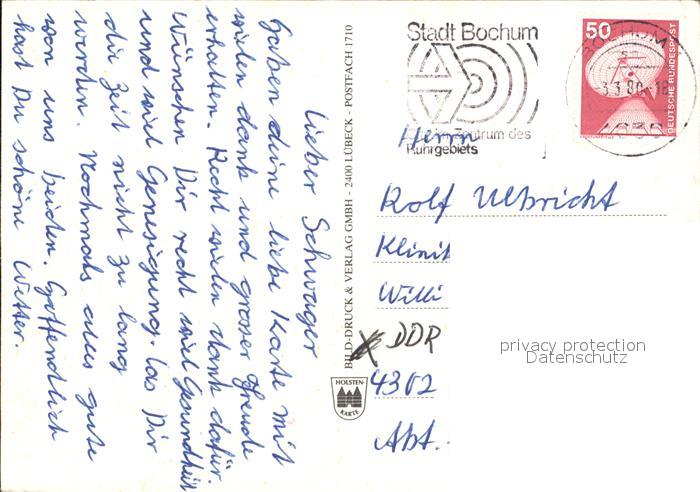 Lieber Schwager
haben deine liebe Karte mit
vielen dank und grosser Freude
erhalten. Recht vielen dank dafür.
Wünschen Dir recht viel Gesundheit
und viel Genesigung. Das Dir
die Zeit nicht zu lang
werden. Nochmals alles gute
von uns beiden. Goffendlich
hast Du schöne Wetter.
BILD-DRUCK & VERLAG GMBH - 2400 LÜBECK - POSTFACH 1710
HOLSTEN-
KARTE
Stadt Bochum
Zentrum des
Ruhrgebiets
BOCHUM
3.3.80-18
4630
50
DEUTSCHE BUNDESPOST
Herrn
Rolf Ulbricht
Klinik
Willi
DDR
4302
Abt.
privacy protection
Datenschutz